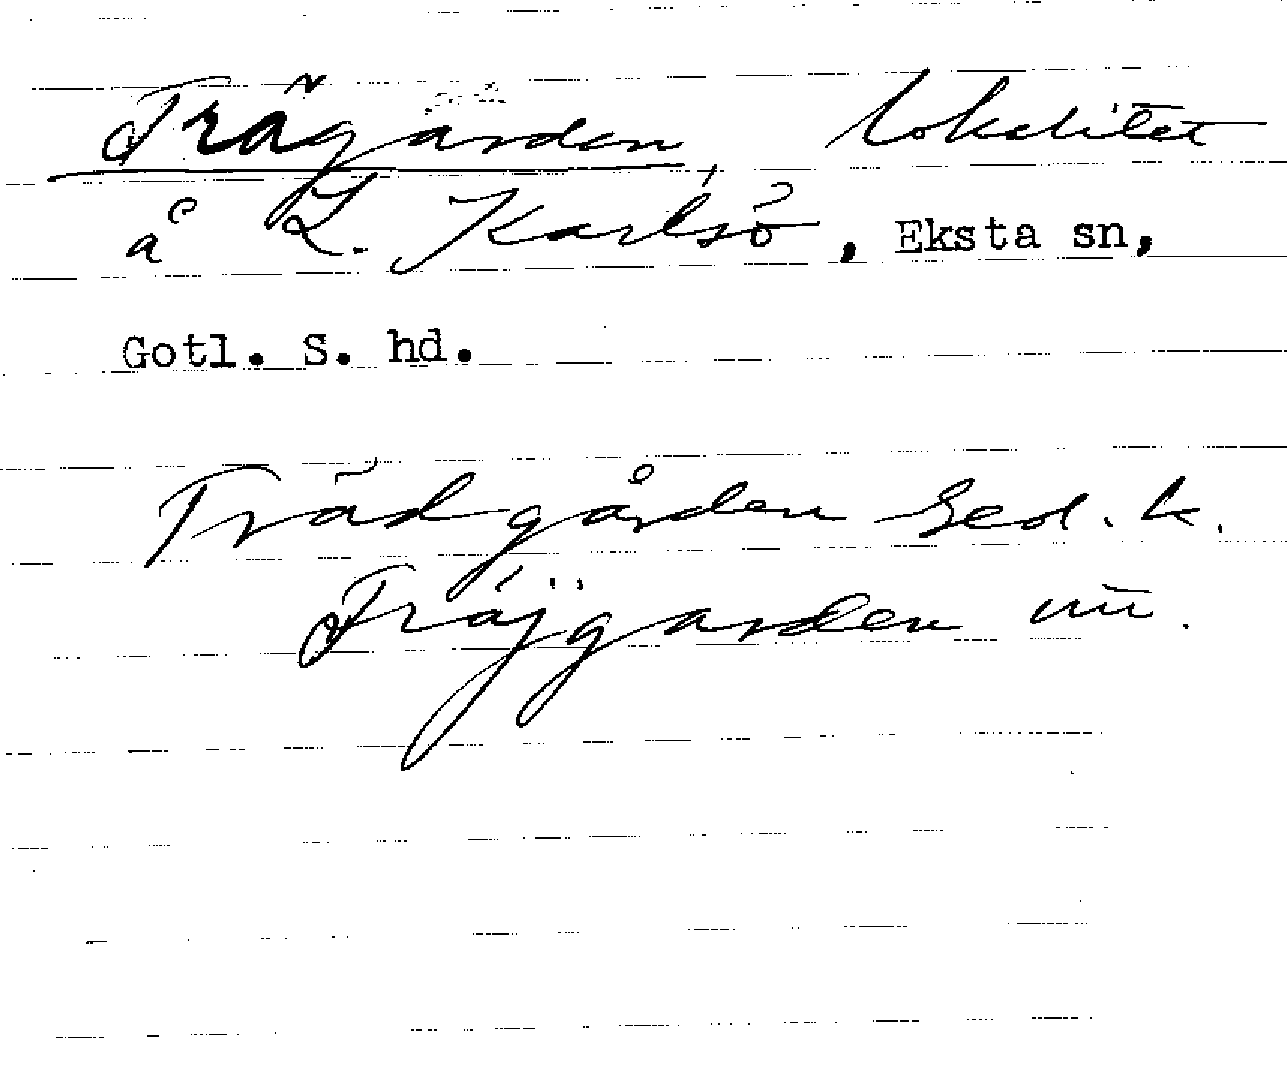 Trägården, lokalitet
å L. Karlsö, Eksta sn,
Gotl. S. hd.
Trädgården Ged. k.
Träjgarden nu.